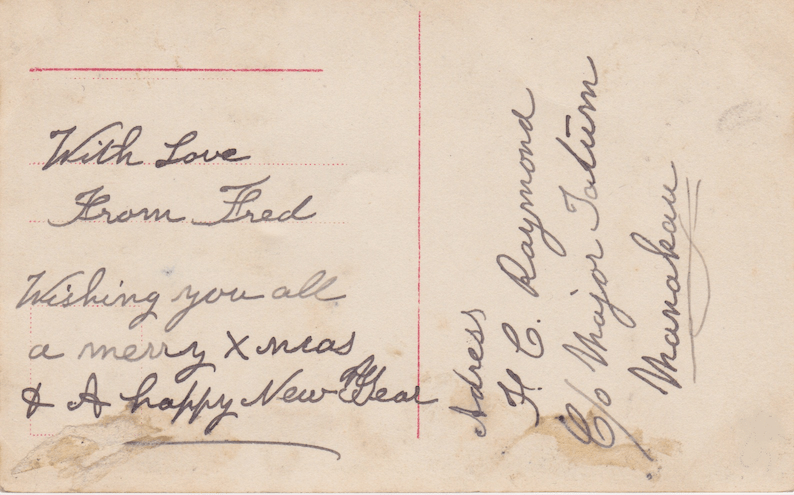 With Love
From Fred
Wishing you all
a merry Xmas
& A happy New Year
Adress
F. C. Raymond
C/o Major Tatum
Manakau